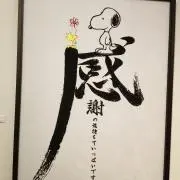 感
謝
の気持ちでいっぱいです